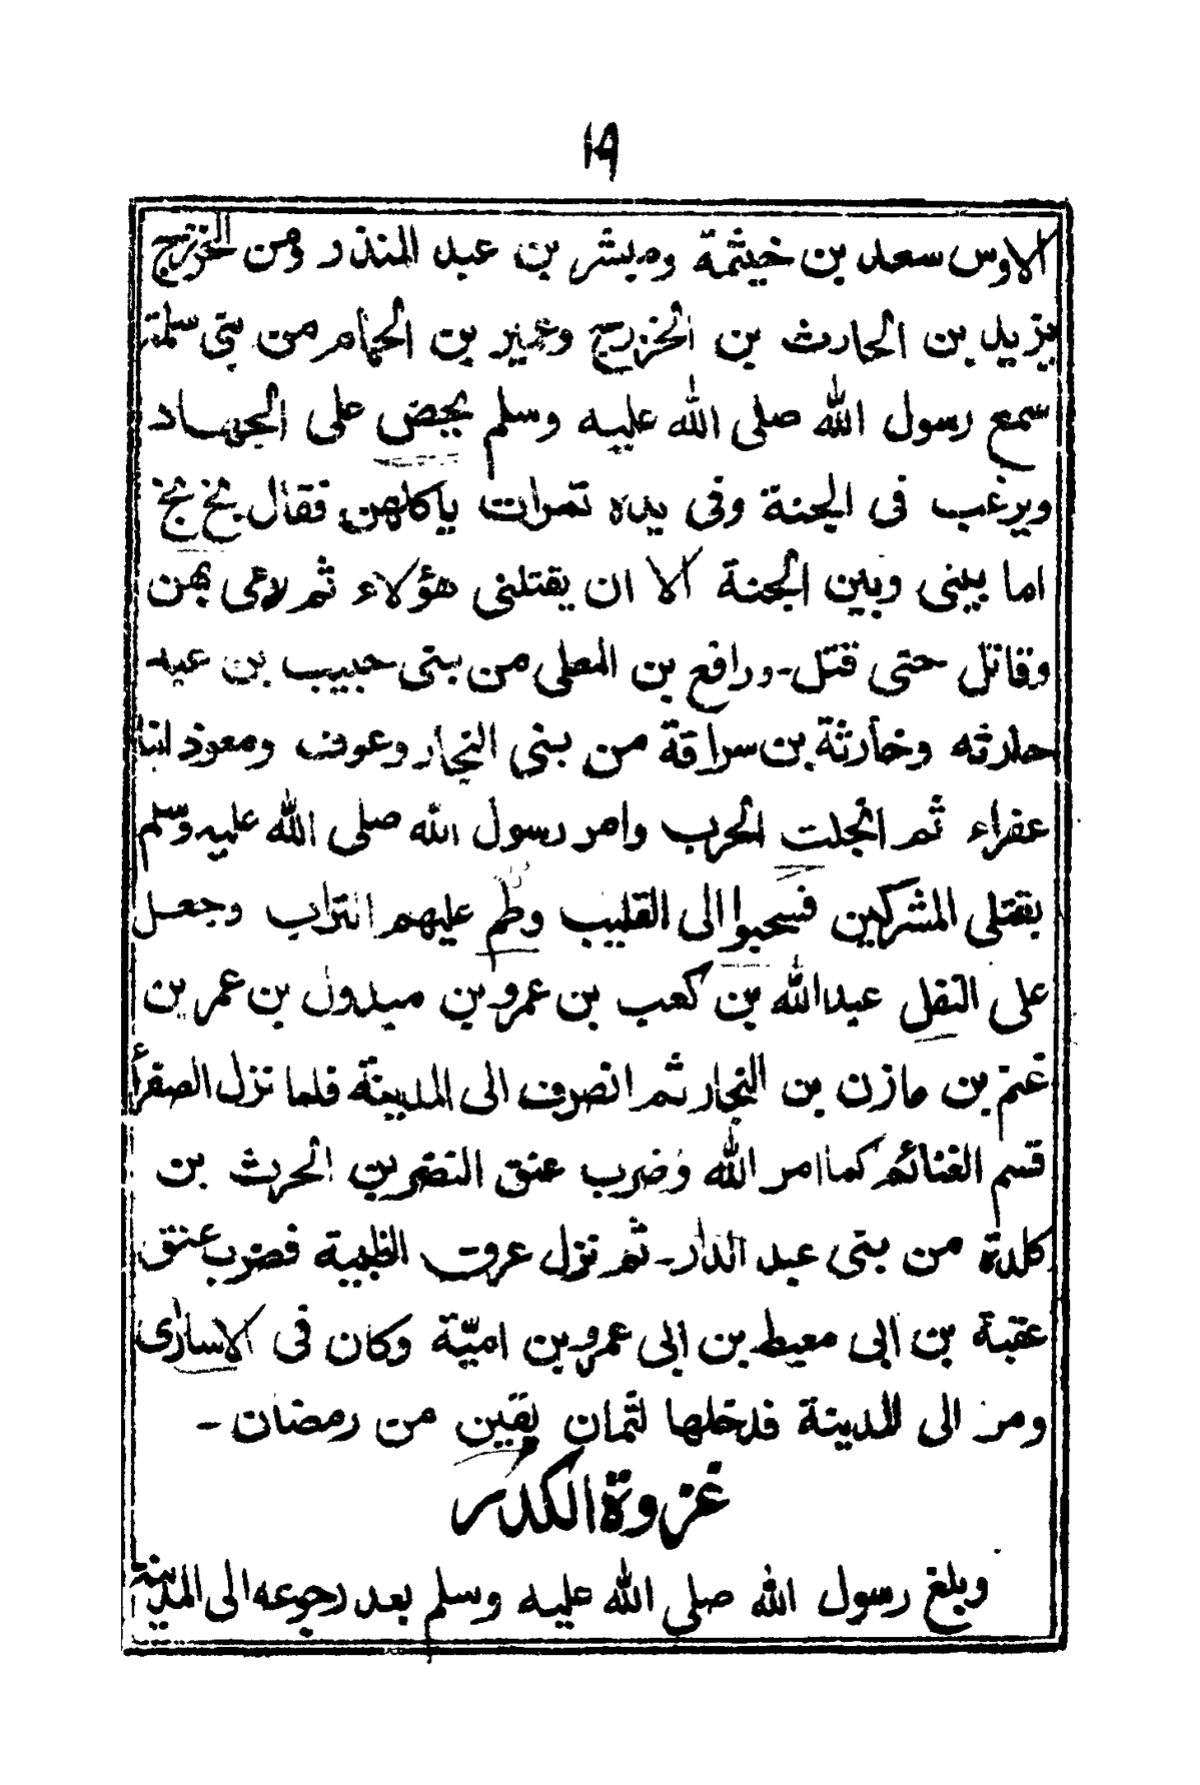 ١٩
الاوس سعد بن خيثمة ومبشر بن عبد المنذر ومن الخزرج
يزيد بن الحارث بن الخزرج وعمير بن الحمام من بنى سلمة
سمع رسول الله صلى الله عليه وسلم يحض على الجهاد
ويرغب فى الجنة وفى يده تمرات ياكلهن فقال بخ بخ
اما بينى وبين الجنة الا ان يقتلنى هؤلاء ثم رمى بهن
وقاتل حتى قتل۔ ورافع بن المعلى من بنى حبيب بن عبد
حارثه وحارثة بن سراقة من بنى النجار وعوف ومعوذ ابنا
عفراء ثم انجلت الحرب وامر رسول الله صلى الله عليه وسلم
بقتلى المشركين فسحبوا الى القليب وطم عليهم التراب وجعل
على النفل عبدالله بن كعب بن عمرو بن مبدول بن عمر بن
غنم بن مازن بن النجار ثم انصرف الى المدينة فلما نزل الصفرأ
قسم الغنائم كما امر الله وضرب عنق النضر بن الحرث بن
كلدة من بنى عبد الدار۔ ثم نزل عرق الظبية فضرب عنق
عقبة بن ابى معيط بن ابى عمرو بن اميّة وكان فى الاسارى
ومر الى المدينة فدخلها لثمان بقين من رمضان۔
غزوة الكدر
وبلغ رسول الله صلى الله عليه وسلم بعد رجوعه الى المدينة